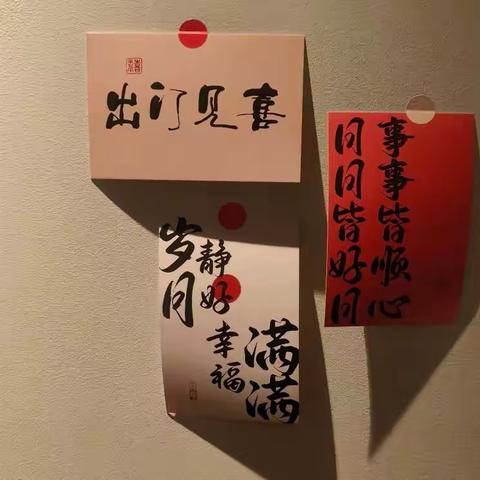 出门见喜
岁月
静好
幸福
满满
事事皆顺心
日日皆好日